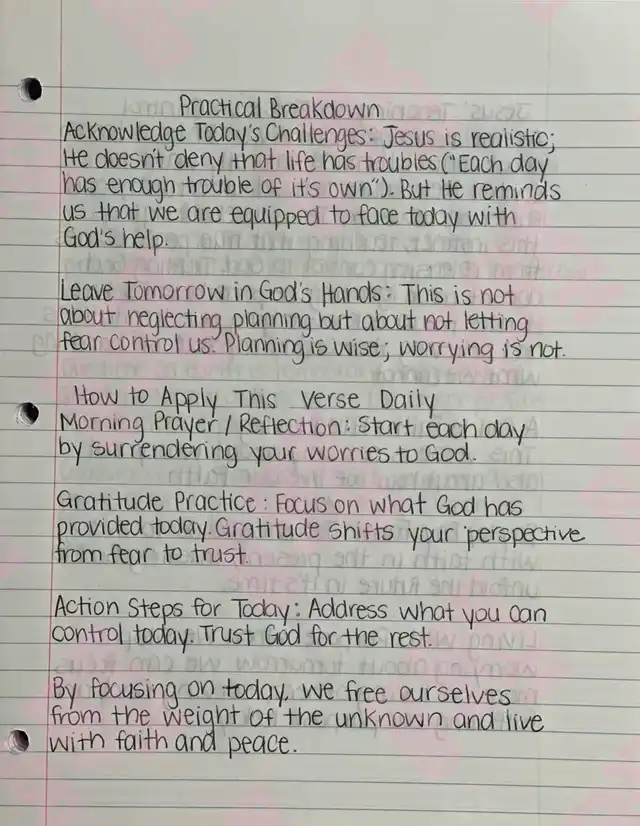 Practical Breakdown
Acknowledge Today's Challenges: Jesus is realistic;
He doesn't deny that life has troubles ("Each day
has enough trouble of it's own"). But He reminds
us that we are equipped to face today with
God's help.
Leave Tomorrow in God's Hands: This is not
about neglecting planning but about not letting
fear control us. Planning is wise; worrying is not.
How to Apply This Verse Daily
Morning Prayer / Reflection: Start each day
by surrendering your worries to God.
Gratitude Practice: Focus on what God has
provided today. Gratitude shifts your perspective
from fear to trust.
Action Steps for Today: Address what you can
control today. Trust God for the rest.
By focusing on today, we free ourselves
from the weight of the unknown and live
with faith and peace.